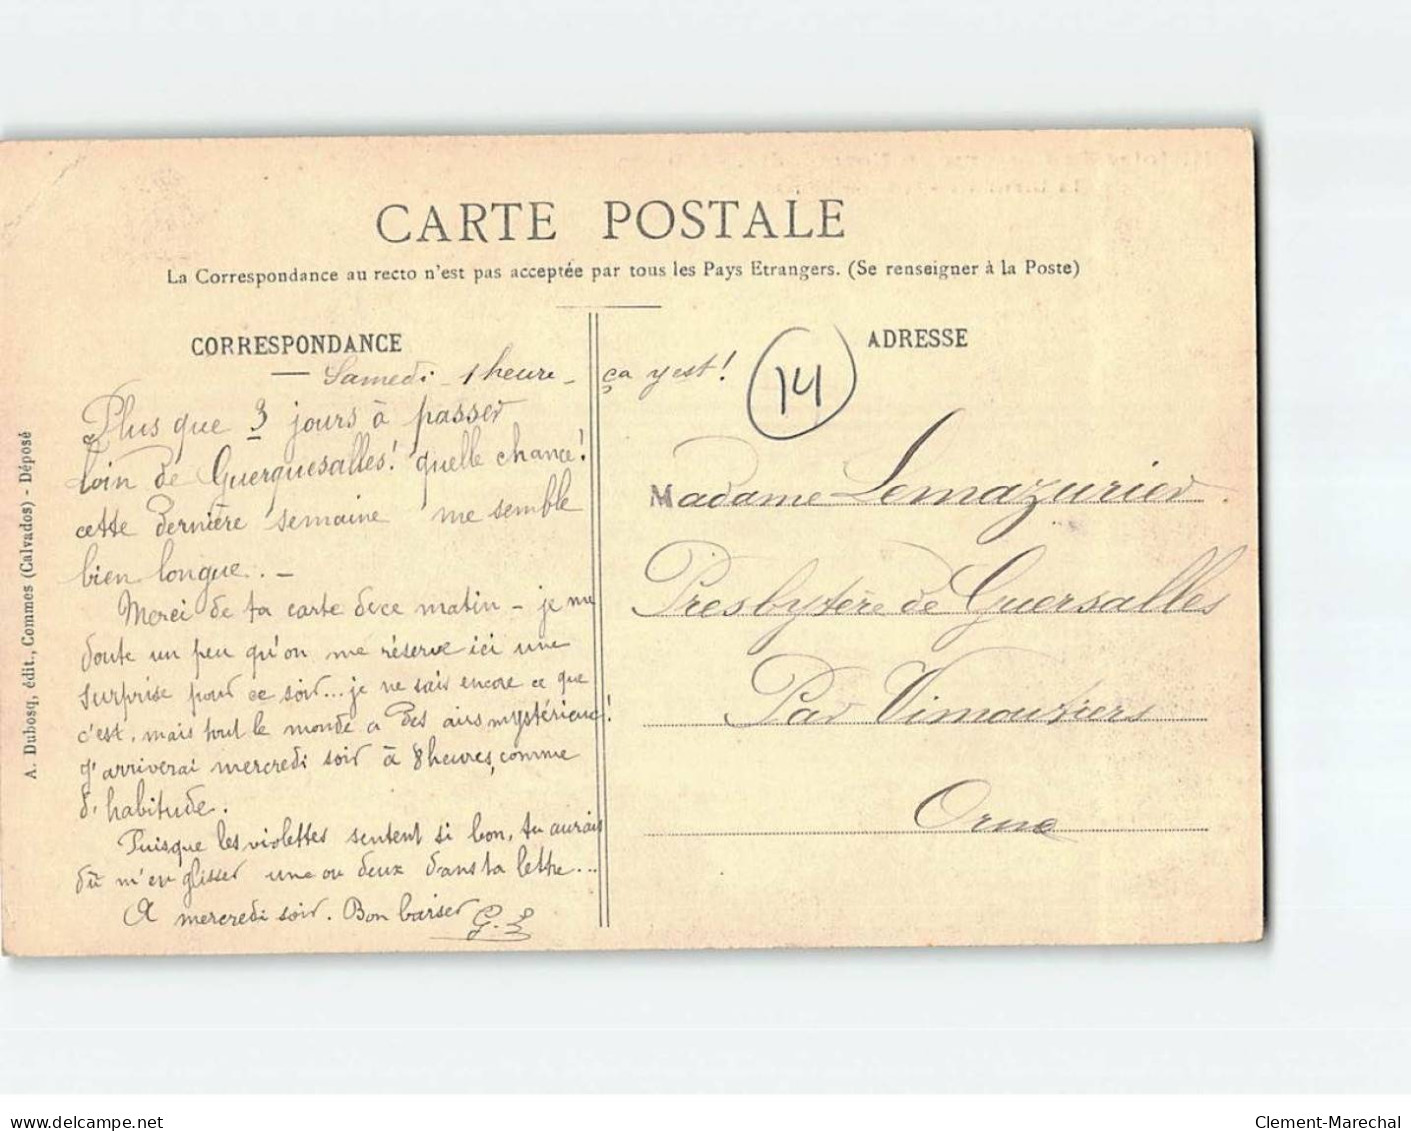 CARTE POSTALE
La Correspondance au recto n'est pas acceptée par tous les Pays Etrangers. (Se renseigner à la Poste)
CORRESPONDANCE
Samedi - 1 heure -
Plus que 3 jours à passer
loin de Guerquesalles! quelle chance!
cette dernière semaine me semble
bien longue.. -
Merci de ta carte de ce matin - je me
doute un peu qu'on me réserve ici une
surprise pour ce soir... je ne sais encore ce que
c'est, mais tout le monde a des airs mystérieux!
J'arriverai mercredi soir à 8 heures, comme
d'habitude.
Puisque les violettes sentent si bon, tu aurais
dû m'en glisser une ou deux dans ta lettre...
A mercredi soir. Bon baiser
ça y est!
14
ADRESSE
Madame Lemazurier
Presbytère de Guersalles
Par Vimoutiers
Orne
A. Dubosq, édit., Commes (Calvados) - Déposé
delcampe.net
Clement-Marechal